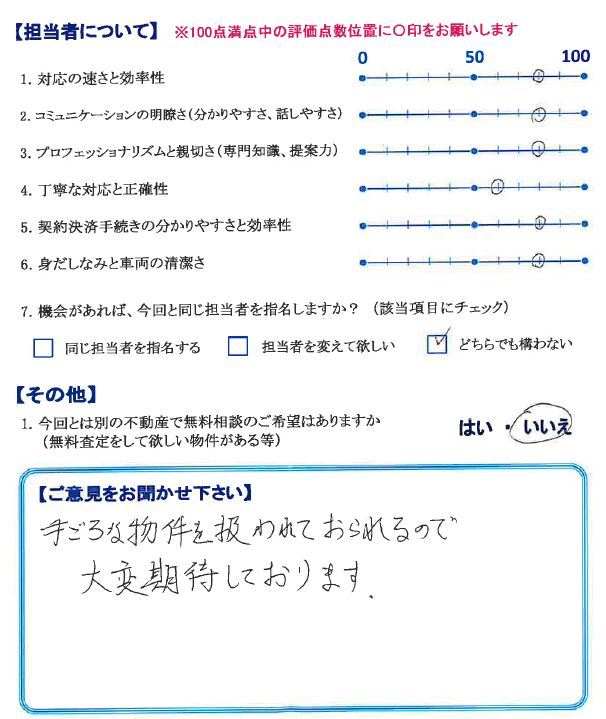 【担当者について】 ※100点満点中の評価点数位置に〇印をお願いします
0 50 100
1. 対応の速さと効率性
2. コミュニケーションの明瞭さ(分かりやすさ、話しやすさ)
3. プロフェッショナリズムと親切さ(専門知識、提案力)
4. 丁寧な対応と正確性
5. 契約決済手続きの分かりやすさと効率性
6. 身だしなみと車両の清潔さ
7. 機会があれば、今回と同じ担当者を指名しますか? (該当項目にチェック)
同じ担当者を指名する 担当者を変えて欲しい どちらでも構わない
【その他】
1. 今回とは別の不動産で無料相談のご希望はありますか はい ・ いいえ
(無料査定をして欲しい物件がある等)
【ご意見をお聞かせ下さい】
手ごろな物件を扱われておられるので
大変期待しております.